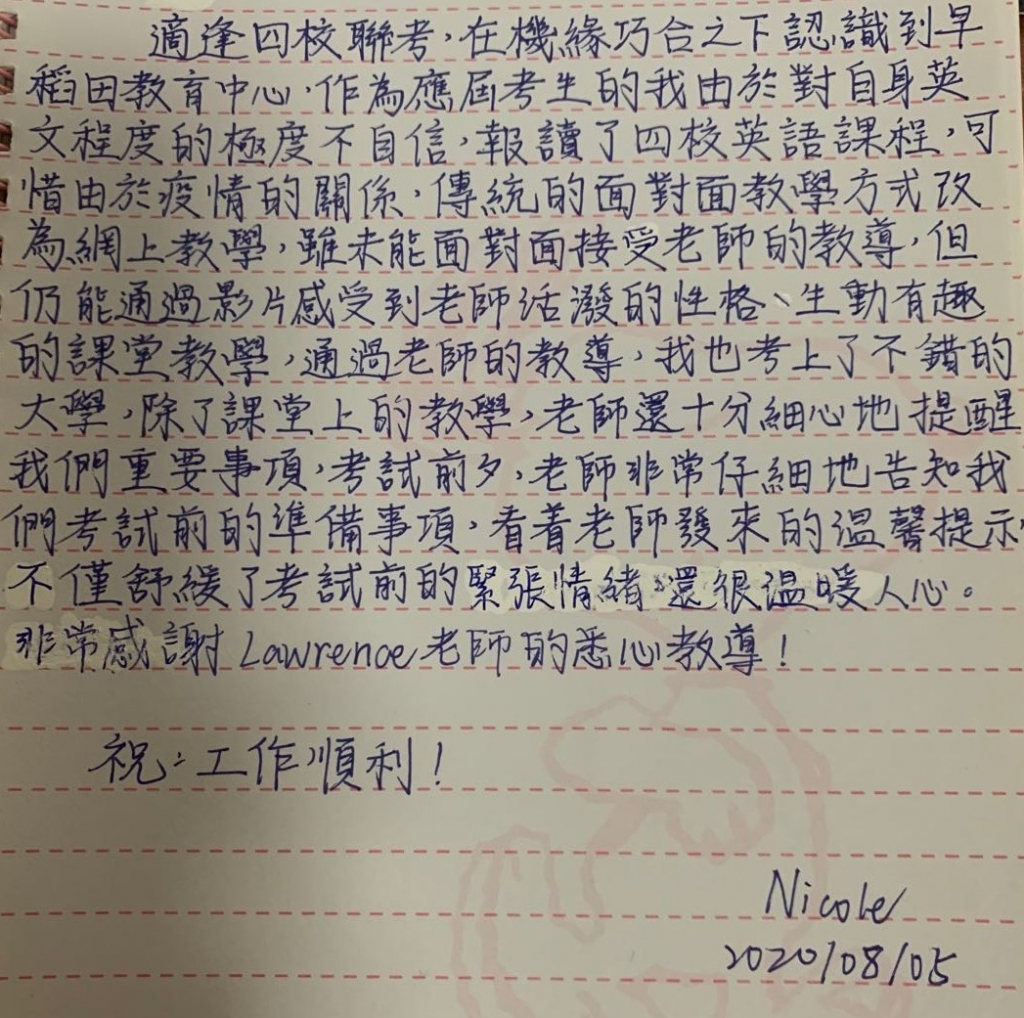 適逢四校聯考，在機緣巧合之下認識到早
稻田教育中心，作為應屆考生的我由於對自身英
文程度的極度不自信，報讀了四校英語課程，可
惜由於疫情的關係，傳統的面對面教學方式改
為網上教學，雖未能面對面接受老師的教導，但
仍能通過影片感受到老師活潑的性格、生動有趣
的課堂教學，通過老師的教導，我也考上了不錯的
大學，除了課堂上的教學，老師還十分細心地提醒
我們重要事項，考試前夕，老師非常仔細地告知我
們考試前的準備事項，看着老師發來的溫馨提示，
不僅舒緩了考試前的緊張情緒，還很溫暖人心。
非常感謝Lawrence老師的悉心教導！
祝：工作順利！
Nicole
2020/08/05